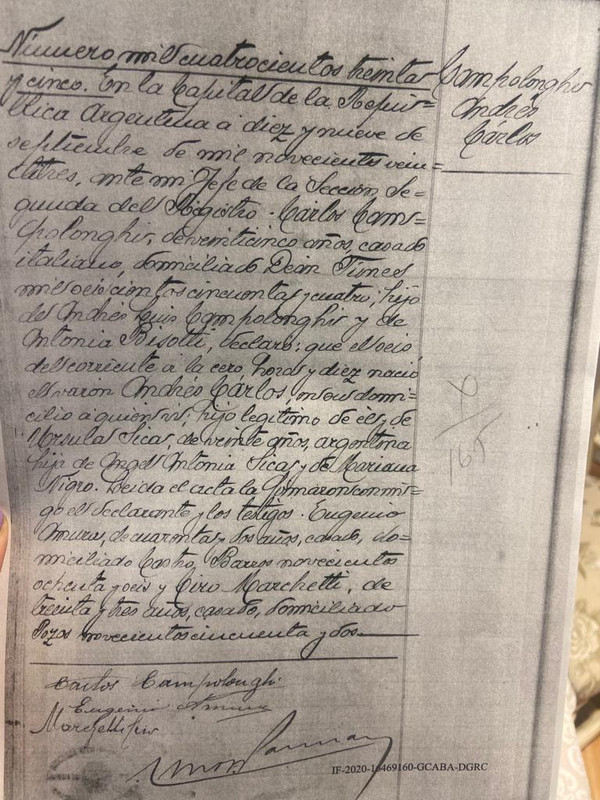 Número mil cuatrocientos treinta
y cinco. En la Capital de la Repú=
blica Argentina a diez y nueve de
septiembre de mil novecientos vein=
titres, ante mi Jefe de la Sección Se=
gunda del Registro. Carlos Cam=
polonghi, de veinticinco años, casado
italiano, domiciliado Dean Funes
mil ochocientos cincuenta y cuatro, hijo
de Andrés Luis Campolonghi y de
Antonia Bisotti, declaró: que el seis
del corriente a la cero, horas y diez nació
el varón Andrés Carlos, en su domi=
cilio a quien vi, hijo legítimo de él y de
Ursula Sicas, de veinte años, argentina
hija de Angel Antonio Sicas y de Mariana
Nigro. Leída el acta la firmaron conmi=
go el declarante y los testigos. Eugenio
de cuarenta y dos años, casado, do=
miciliado Castro Barros novecientos
ochenta y seis y Ciro Marchetti, de
treinta y tres años, casado, domiciliado
Pozos novecientos cincuenta y dos
Campolonghi
Andrés
Carlos
Carlos Campolonghi
Eugenio
Marchetti Ciro
IF-2020-16469160-GCABA-DGRC